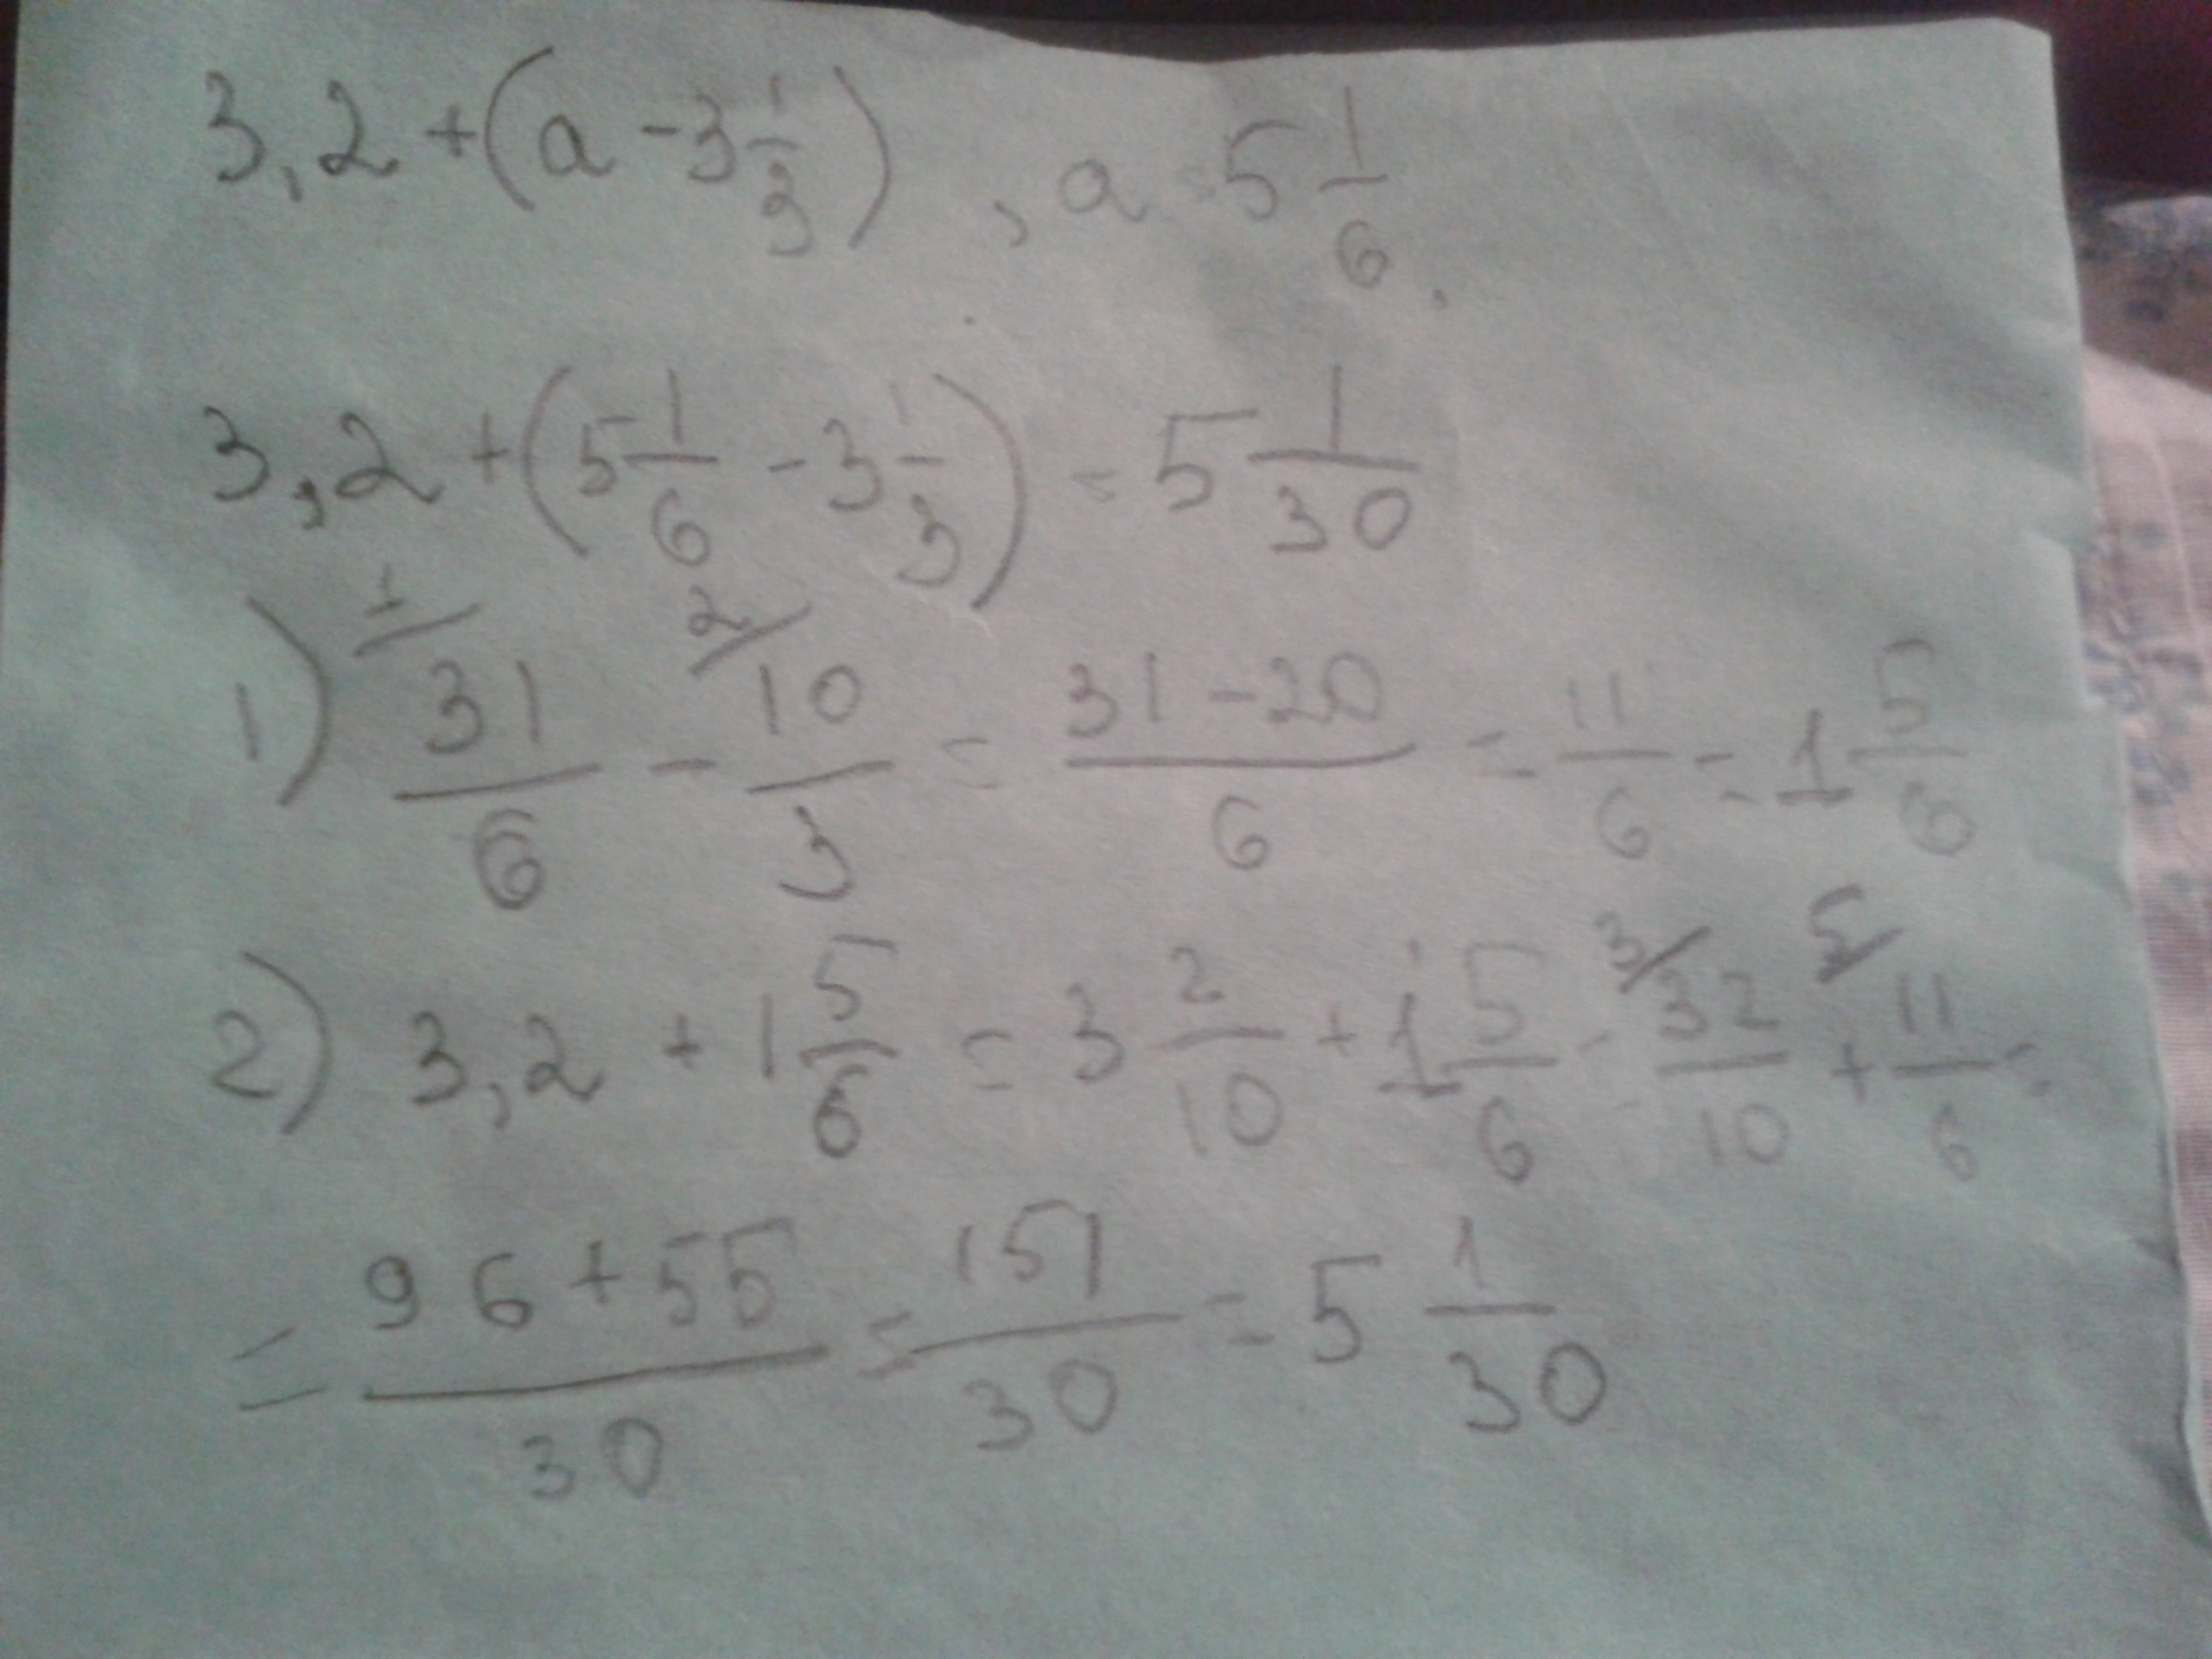 3,2 + (a - 3 1/3), a 5 1/6.
3,2 + (5 1/6 - 3 1/3) = 5 1/30
1) 1/ 31/6 - 2/ 10/3 = (31 - 20)/6 = 11/6 = 1 5/6
2) 3,2 + 1 5/6 = 3 2/10 + 1 5/6 = 3/ 32/10 + 5/ 11/6 =
= (96 + 55)/30 = 151/30 = 5 1/30